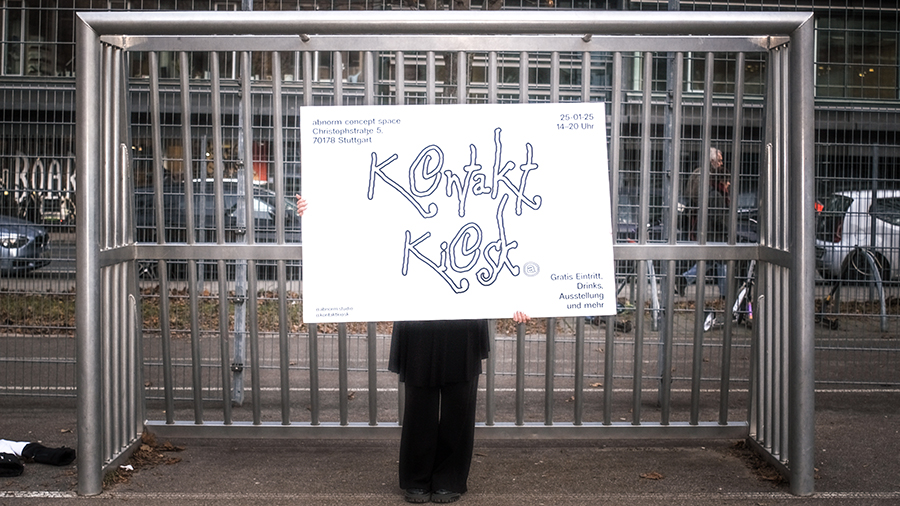 abnorm concept space
Christophstraße 5,
70178 Stuttgart
25-01-25
14-20 Uhr
Kontakt
Kiosk
Gratis Eintritt,
Drinks,
Ausstellung
und mehr
ROAR